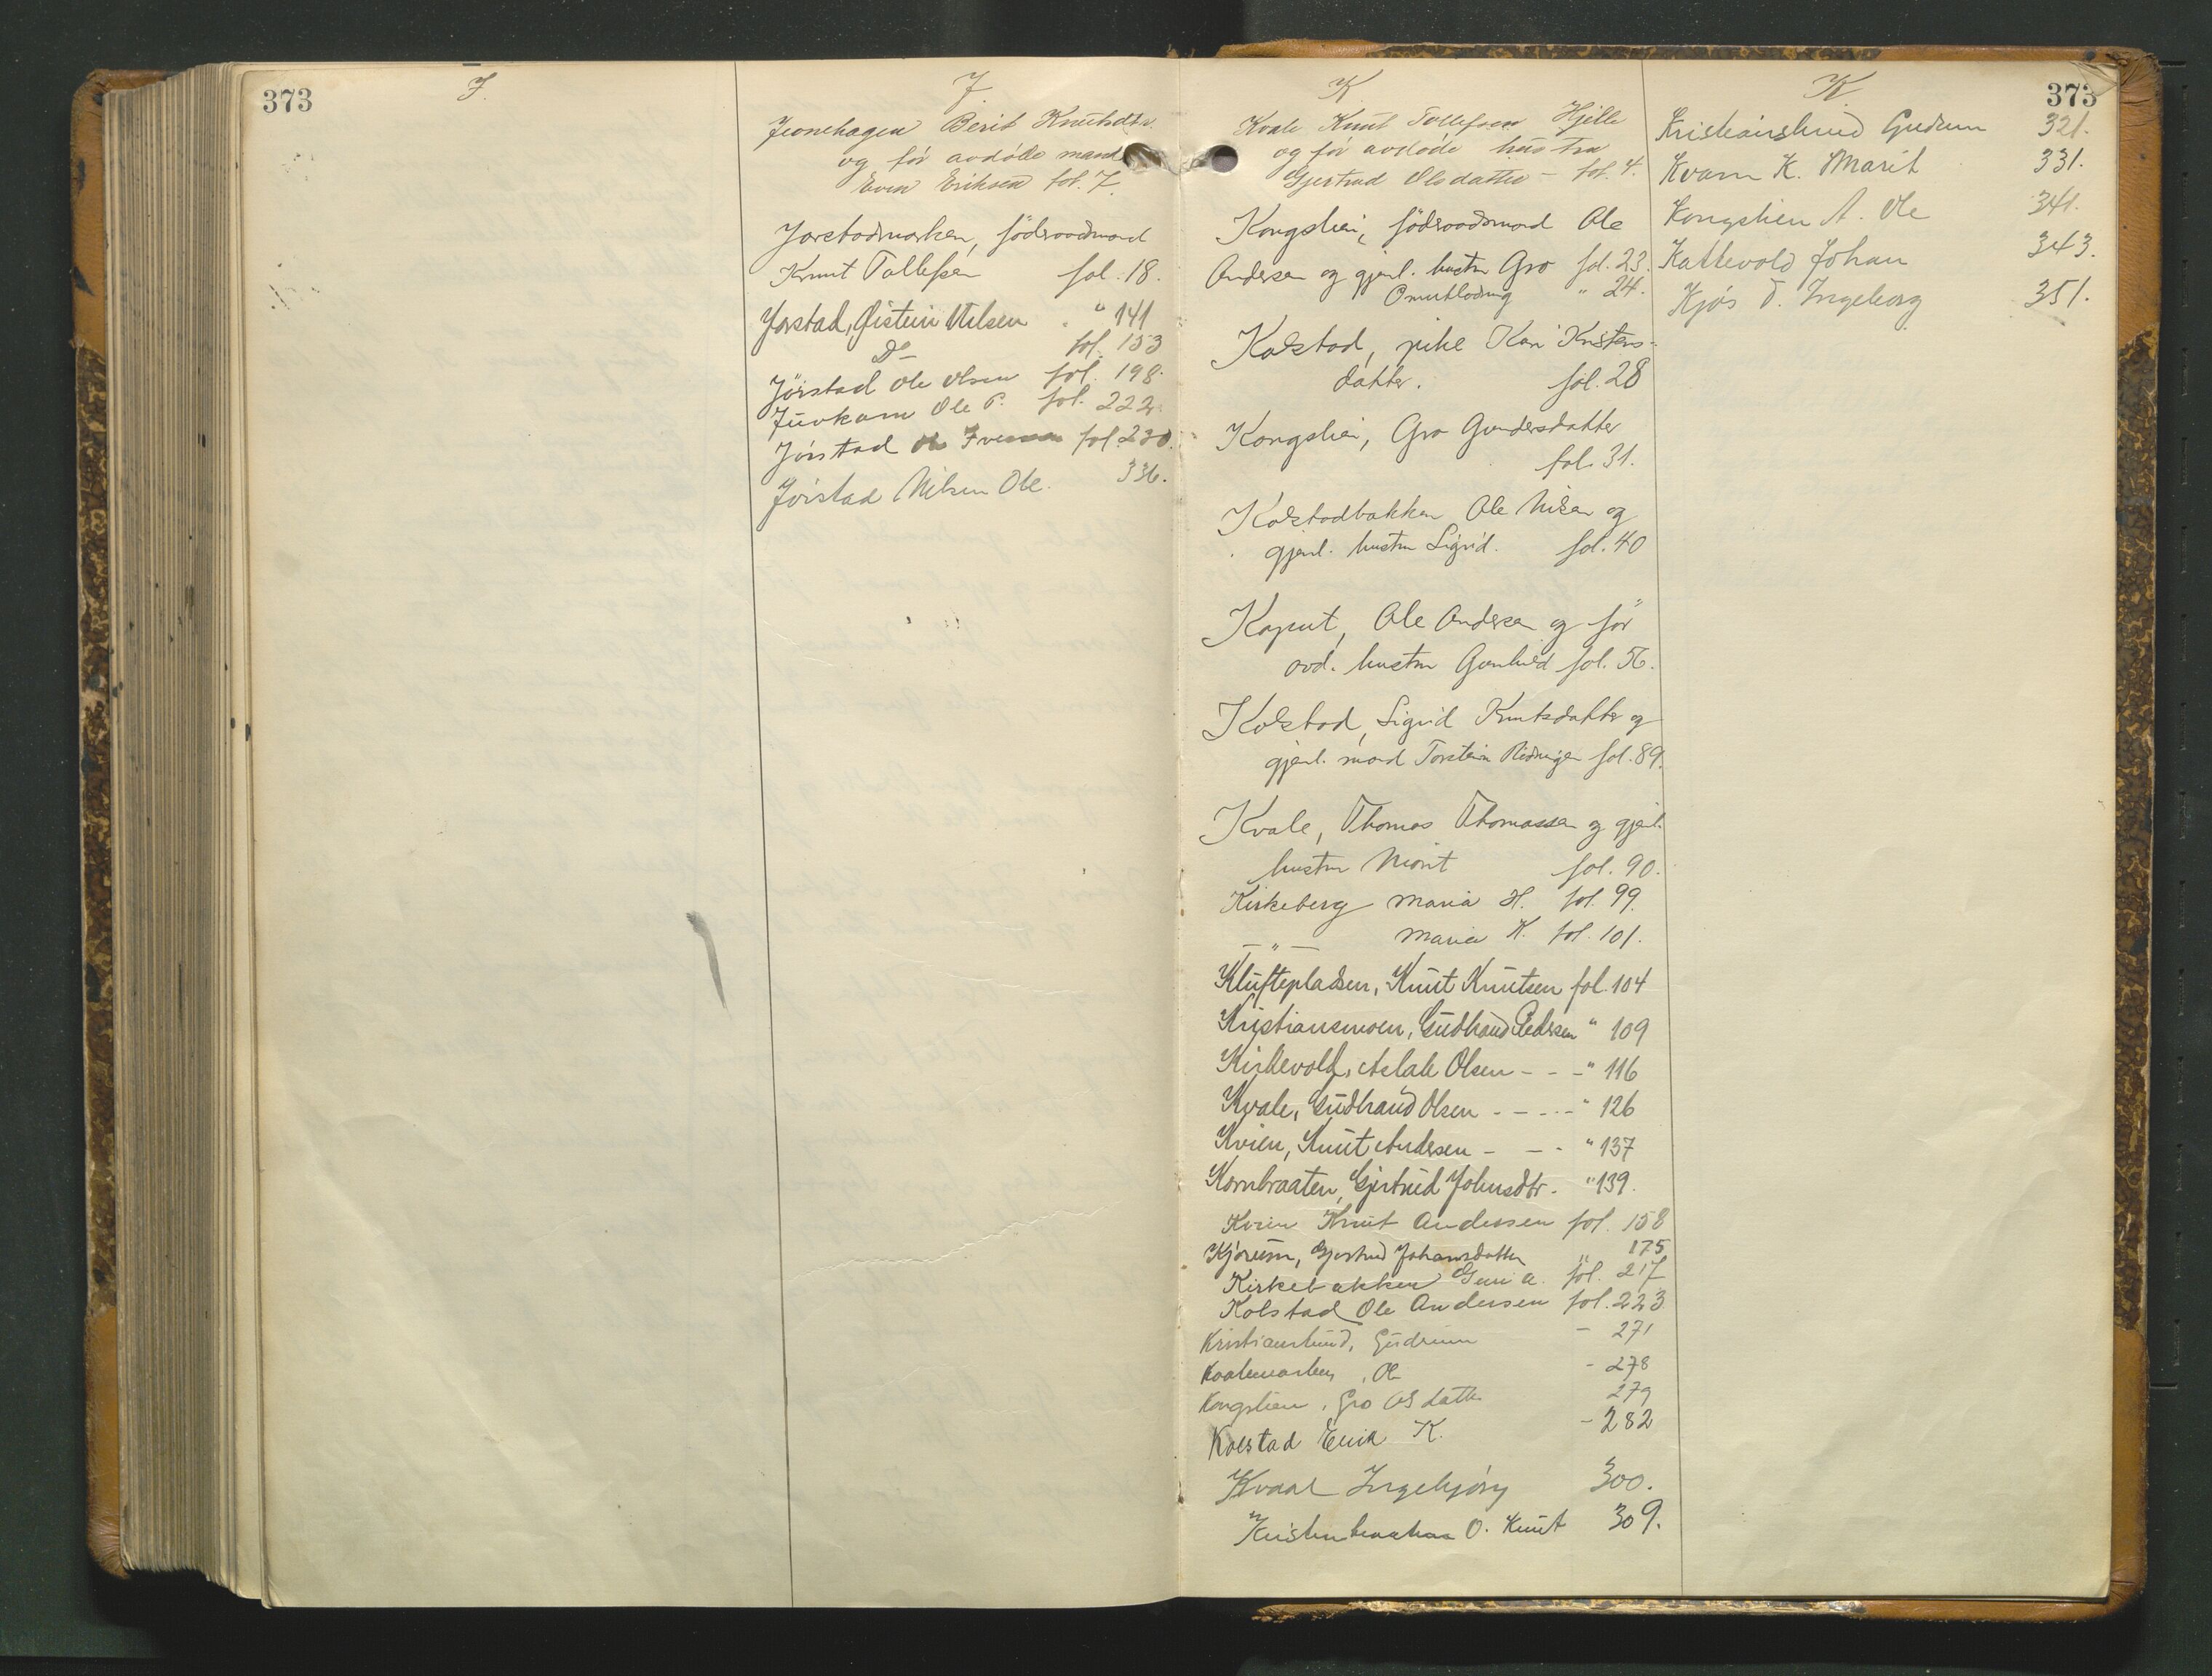 373
J.
J.
Jronehagen Berit Knutsdtr.
og før avdøde mand
Even Eriksen fol. 7.
Jorstadmarken, föderaadmand
Knut Tollefsen fol. 18.
Jorstad, Øistein Nilsen " 141
Do fol. 153
Jörstad Ole Olsen fol. 198.
Juvkam Ole P. fol. 222
Jörstad Ole Iversen fol. 230.
Jörstad Nilsen Ole. 336.
K
Kvale Knut Tollefsen Hjelle
og før avdøde hustru
Gjertrud Olsdatter - fol. 4.
Kongslien, föderaadsmand Ole
Andersen og gjenl. hustru Gro fol. 23.
Omutlodning " 24.
Kolstad, pike Kari Kristens-
datter. fol. 28
Kongslien, Gro Gundersdatter
fol. 31.
Kolstadbakken Ole Nilsen og
gjenl. hustru Sigrid. fol. 40
Kaput, Ole Andersen og för
avd. hustru Gunhild fol. 56.
Kolstad, Sigrid Knutsdatter og
gjenl. mand Torstein fol. 89.
Kvale, Thomas Thomassen og gjenl.
hustru Marit fol. 90.
Kirkeberg Maria H. fol. 99.
— " — Maria K. fol. 101.
Kluftepladsen, Knut Knutsen fol. 104
Kristiansmoen, Gudbrand Pedersen " 109
Kirkevold, Aslak Olsen - - - " 116
Kvale, Gudbrand Olsen - - - - " 126
Kvien, Knut Andersen - - - " 137
Kornbraaten, Gjertrud Johnsdtr. " 139.
Kvien Knut Andersen fol. 158
Kjörum, Gjertrud Johansdatter " 175
Kirkebakken Guri A. fol. 217
Kolstad Ole Andersen fol. 223
Kristianslund, Gudrun - 271
Kvalemarken, Ole - 278
Kongslien, Gro Olsdatter 279
Kolstad Erik K. - 282
Kvaal Ingebjörg 300.
O. Knut 309.
K
373
Kristianslund Gudrun 321.
Kvam K. Marit 331.
Kongslien A. Ole 341.
Kattevold Johan 343.
Kjös T. Ingeborg 351.